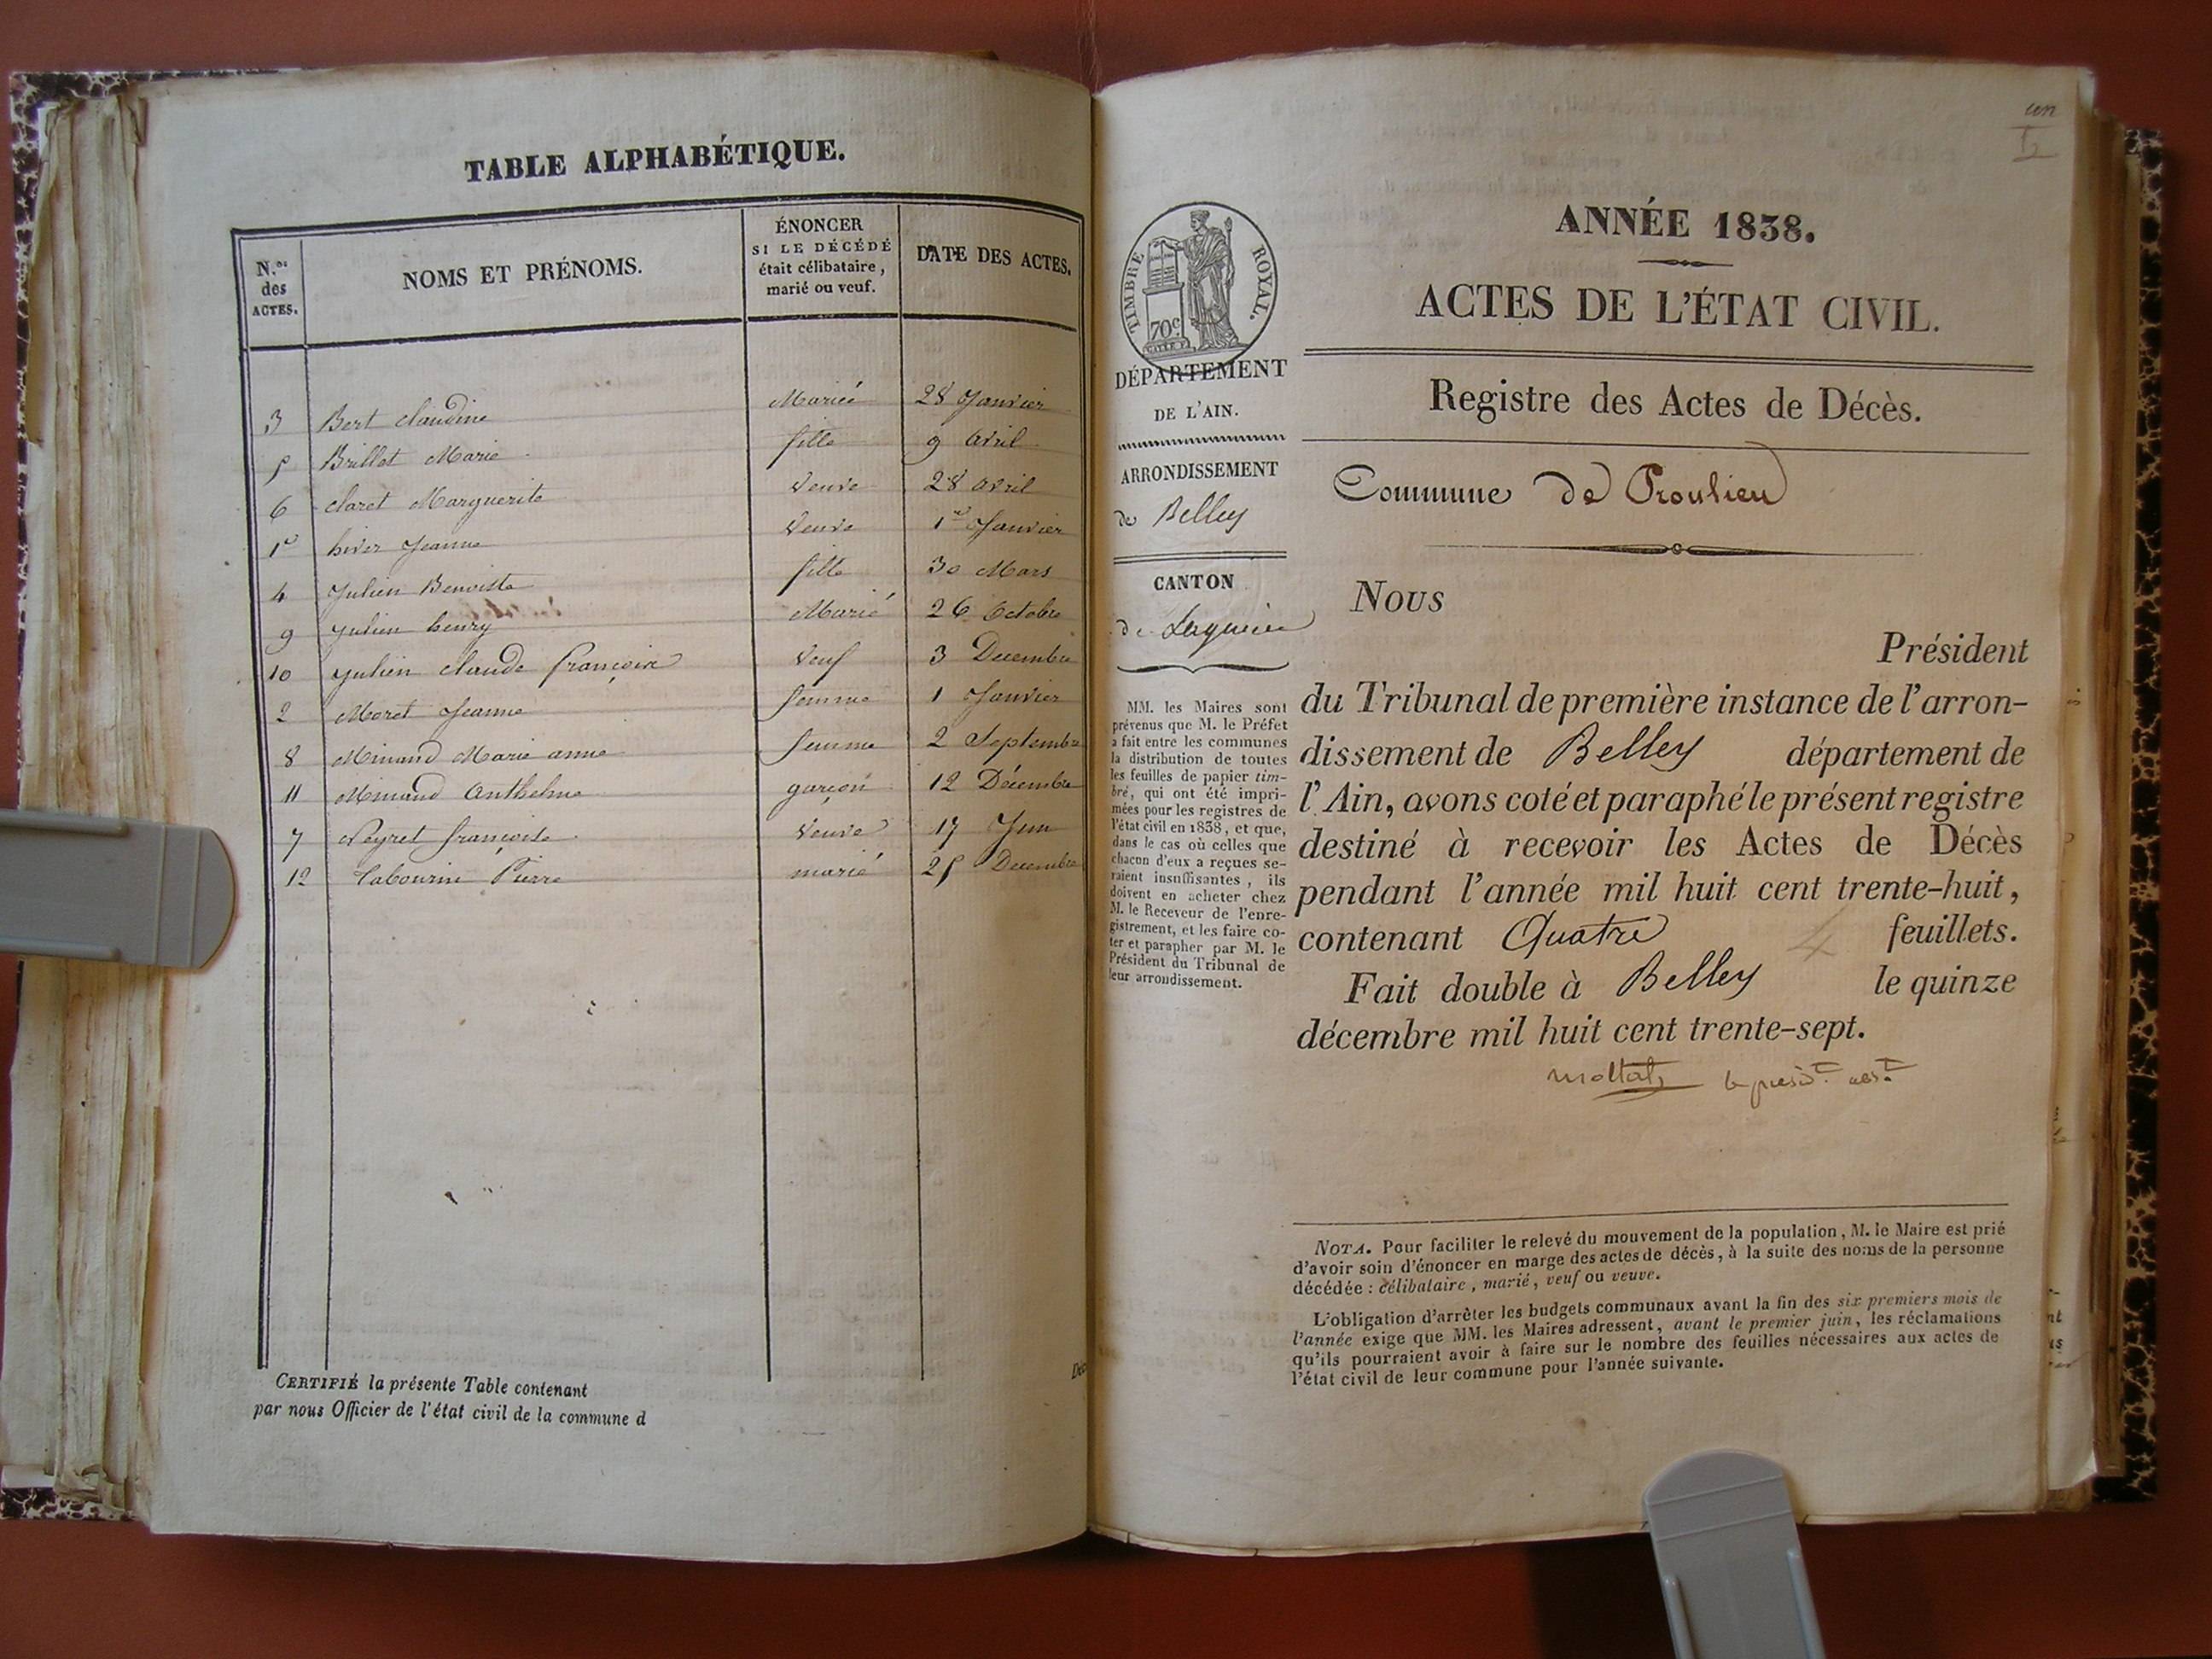 TABLE ALPHABÉTIQUE.
N.os des ACTES.
NOMS ET PRÉNOMS.
ÉNONCER SI LE DÉCÉDÉ était célibataire, marié ou veuf.
DATE DES ACTES.
3 Bert Claudine Mariée 28 Janvier
5 Brillet Marie fille 9 Avril
6 Claret Marguerite Veuve 28 Avril
1er hiver Jeanne Veuve 1er Janvier
4 Julien Benoiste fille 30 Mars
9 Julien henry Marié 26 Octobre
10 Julien Claude françoix Veuf 3 Decembre
2 Moret Jeanne femme 1 Janvier
8 Minand Marie anne femme 2 Septembre
11 Minand Anthelme garçon 12 Décembre
7 Peyret françoise Veuve 17 Juin
12 Tabourin Pierre marié 25 Decembre
CERTIFIÉ la présente Table contenant
par nous Officier de l'état civil de la commune d
un
TIMBRE ROYAL.
70c
DÉPARTEMENT
DE L'AIN.
ARRONDISSEMENT
de Belley
CANTON
de Lagnieu
MM. les Maires sont
prévenus que M. le Préfet
a fait entre les communes
la distribution de toutes
les feuilles de papier tim-
bré, qui ont été impri-
mées pour les registres de
l'état civil en 1838, et que,
dans le cas où celles que
chacun d'eux a reçues se-
raient insuffisantes, ils
doivent en acheter chez
M. le Receveur de l'enre-
gistrement, et les faire co-
ter et parapher par M. le
Président du Tribunal de
leur arrondissement.
ANNÉE 1838.
ACTES DE L'ÉTAT CIVIL.
Registre des Actes de Décès.
Commune de Proulieu
NOUS
Président
du Tribunal de première instance de l'arron-
dissement de Belley département de
l'Ain, avons coté et paraphé le présent registre
destiné à recevoir les Actes de Décès
pendant l'année mil huit cent trente-huit,
contenant Quatre 4 feuillets.
Fait double à Belley le quinze
décembre mil huit cent trente-sept.
NOTA. Pour faciliter le relevé du mouvement de la population, M. le Maire est prié
d'avoir soin d'énoncer en marge des actes de décès, à la suite des noms de la personne
décédée : célibataire, marié, veuf ou veuve.
L'obligation d'arrêter les budgets communaux avant la fin des six premiers mois de
l'année exige que MM. les Maires adressent, avant le premier juin, les réclamations
qu'ils pourraient avoir à faire sur le nombre des feuilles nécessaires aux actes de
l'état civil de leur commune pour l'année suivante.